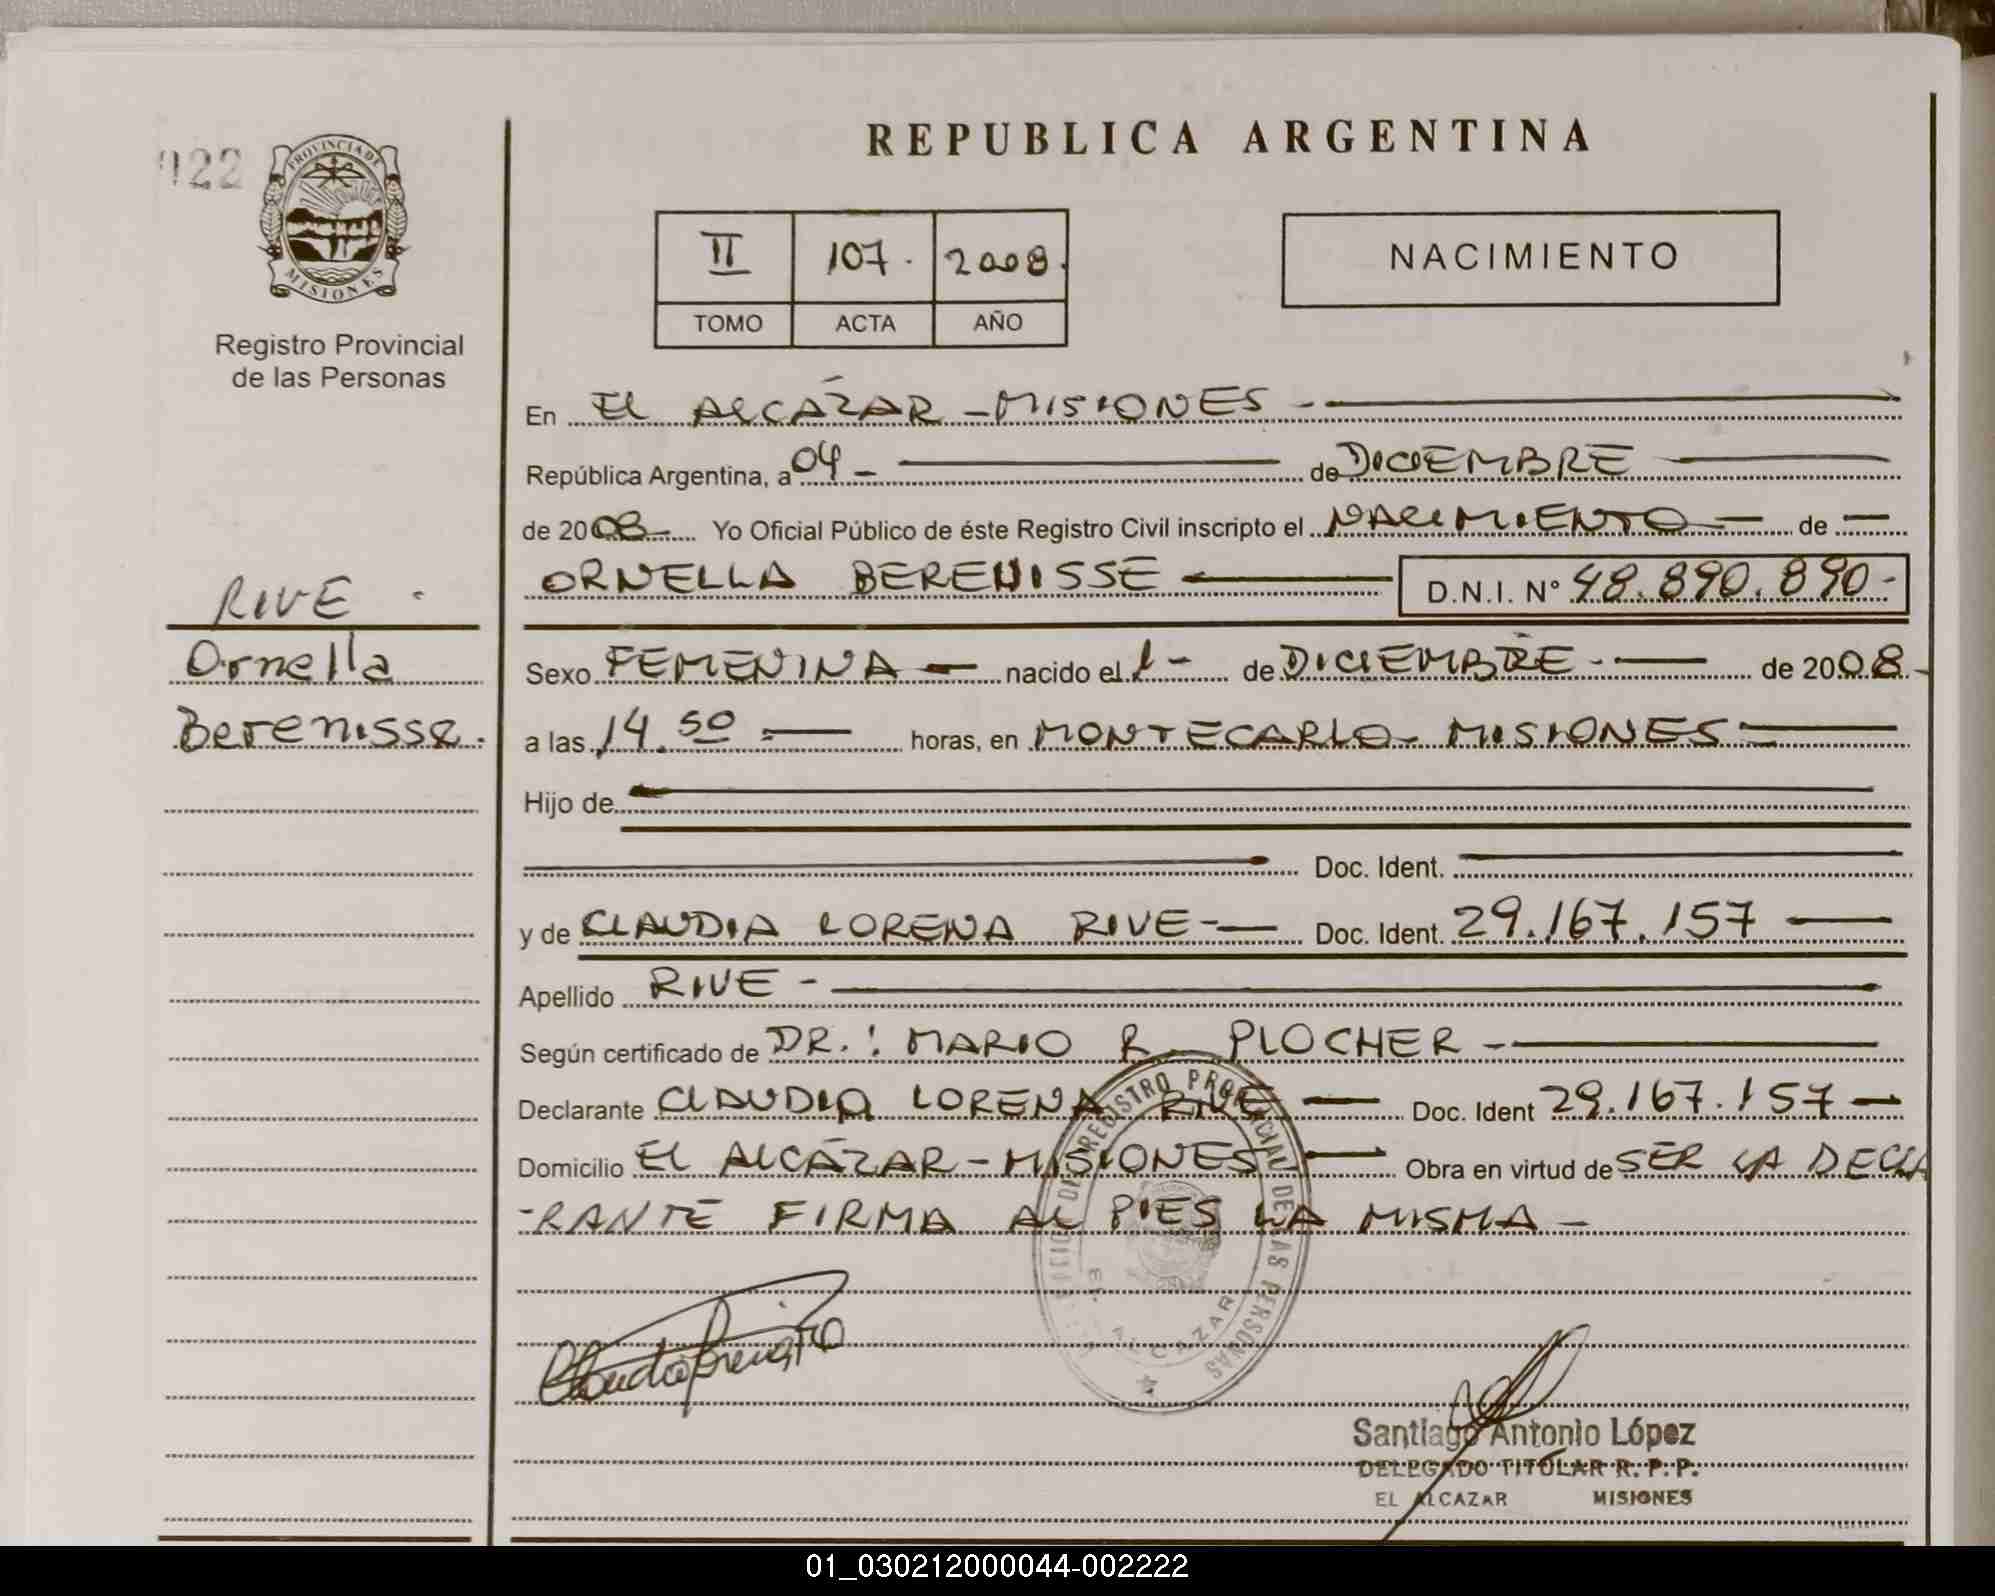 REPUBLICA ARGENTINA
122
PROVINCIA DE
MISIONES
Registro Provincial
de las Personas
II 107. 2008.
TOMO ACTA AÑO
NACIMIENTO
En EL ALCÁZAR - MISIONES -
República Argentina, a 04 - de DICIEMBRE
de 2008 Yo Oficial Público de éste Registro Civil inscripto el NACIMIENTO - de -
ORNELLA BERENISSE D.N.I. N° 48.890.890-
RIVE -
Ornella
Berenisse.
Sexo FEMENINA - nacido el 1 - de DICIEMBRE - de 2008.-
a las 14.50 horas, en MONTECARLO - MISIONES
Hijo de
Doc. Ident.
y de CLAUDIA LORENA RIVE - Doc. Ident. 29.167.157
Apellido RIVE -
Según certificado de DR.: MARIO R. PLOCHER -
Declarante CLAUDIA LORENA RIVE - Doc. Ident 29.167.157 -
Domicilio EL ALCÁZAR - MISIONES Obra en virtud de SER LA DECLA
-RANTE FIRMA AL PIES LA MISMA -
REGISTRO PROVINCIAL DE LAS PERSONAS
EL ALCAZAR
Santiago Antonio López
DELEGADO TITULAR R. P. P.
EL ALCAZAR MISIONES
01_030212000044-002222